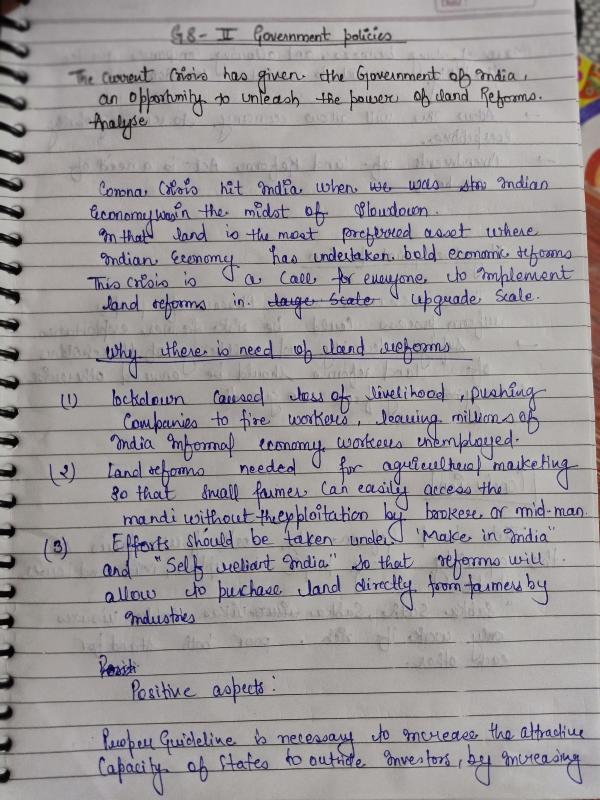 GS- II Government policies
The current Crisis has given the Government of India,
an opportunity to unleash the power of land Reforms.
Analyse
Corona Crisis hit India when we was Indian
Economy was in the midst of Slowdown.
In that land is the most preferred asset where
Indian Economy has undertaken bold economic reforms
This crisis is a call for everyone to implement
land reforms in large State upgrade scale.
Why there is need of land reforms
(1) lockdown caused loss of livelihood, pushing
Companies to fire workers, leaving millions of
India Informal economy workers unemployed.
(2) Land reforms needed for agricultural marketing
so that small farmer can easily access the
mandi without the exploitation by brokers or mid-man.
(3) Efforts should be taken under 'Make in India"
and "Self reliant India" so that reforms will
allow to purchase land directly from farmers by
Industries
Positive aspects:
Proper Guideline is necessary to increase the attractive
Capacity of States to outside investors, by increasing